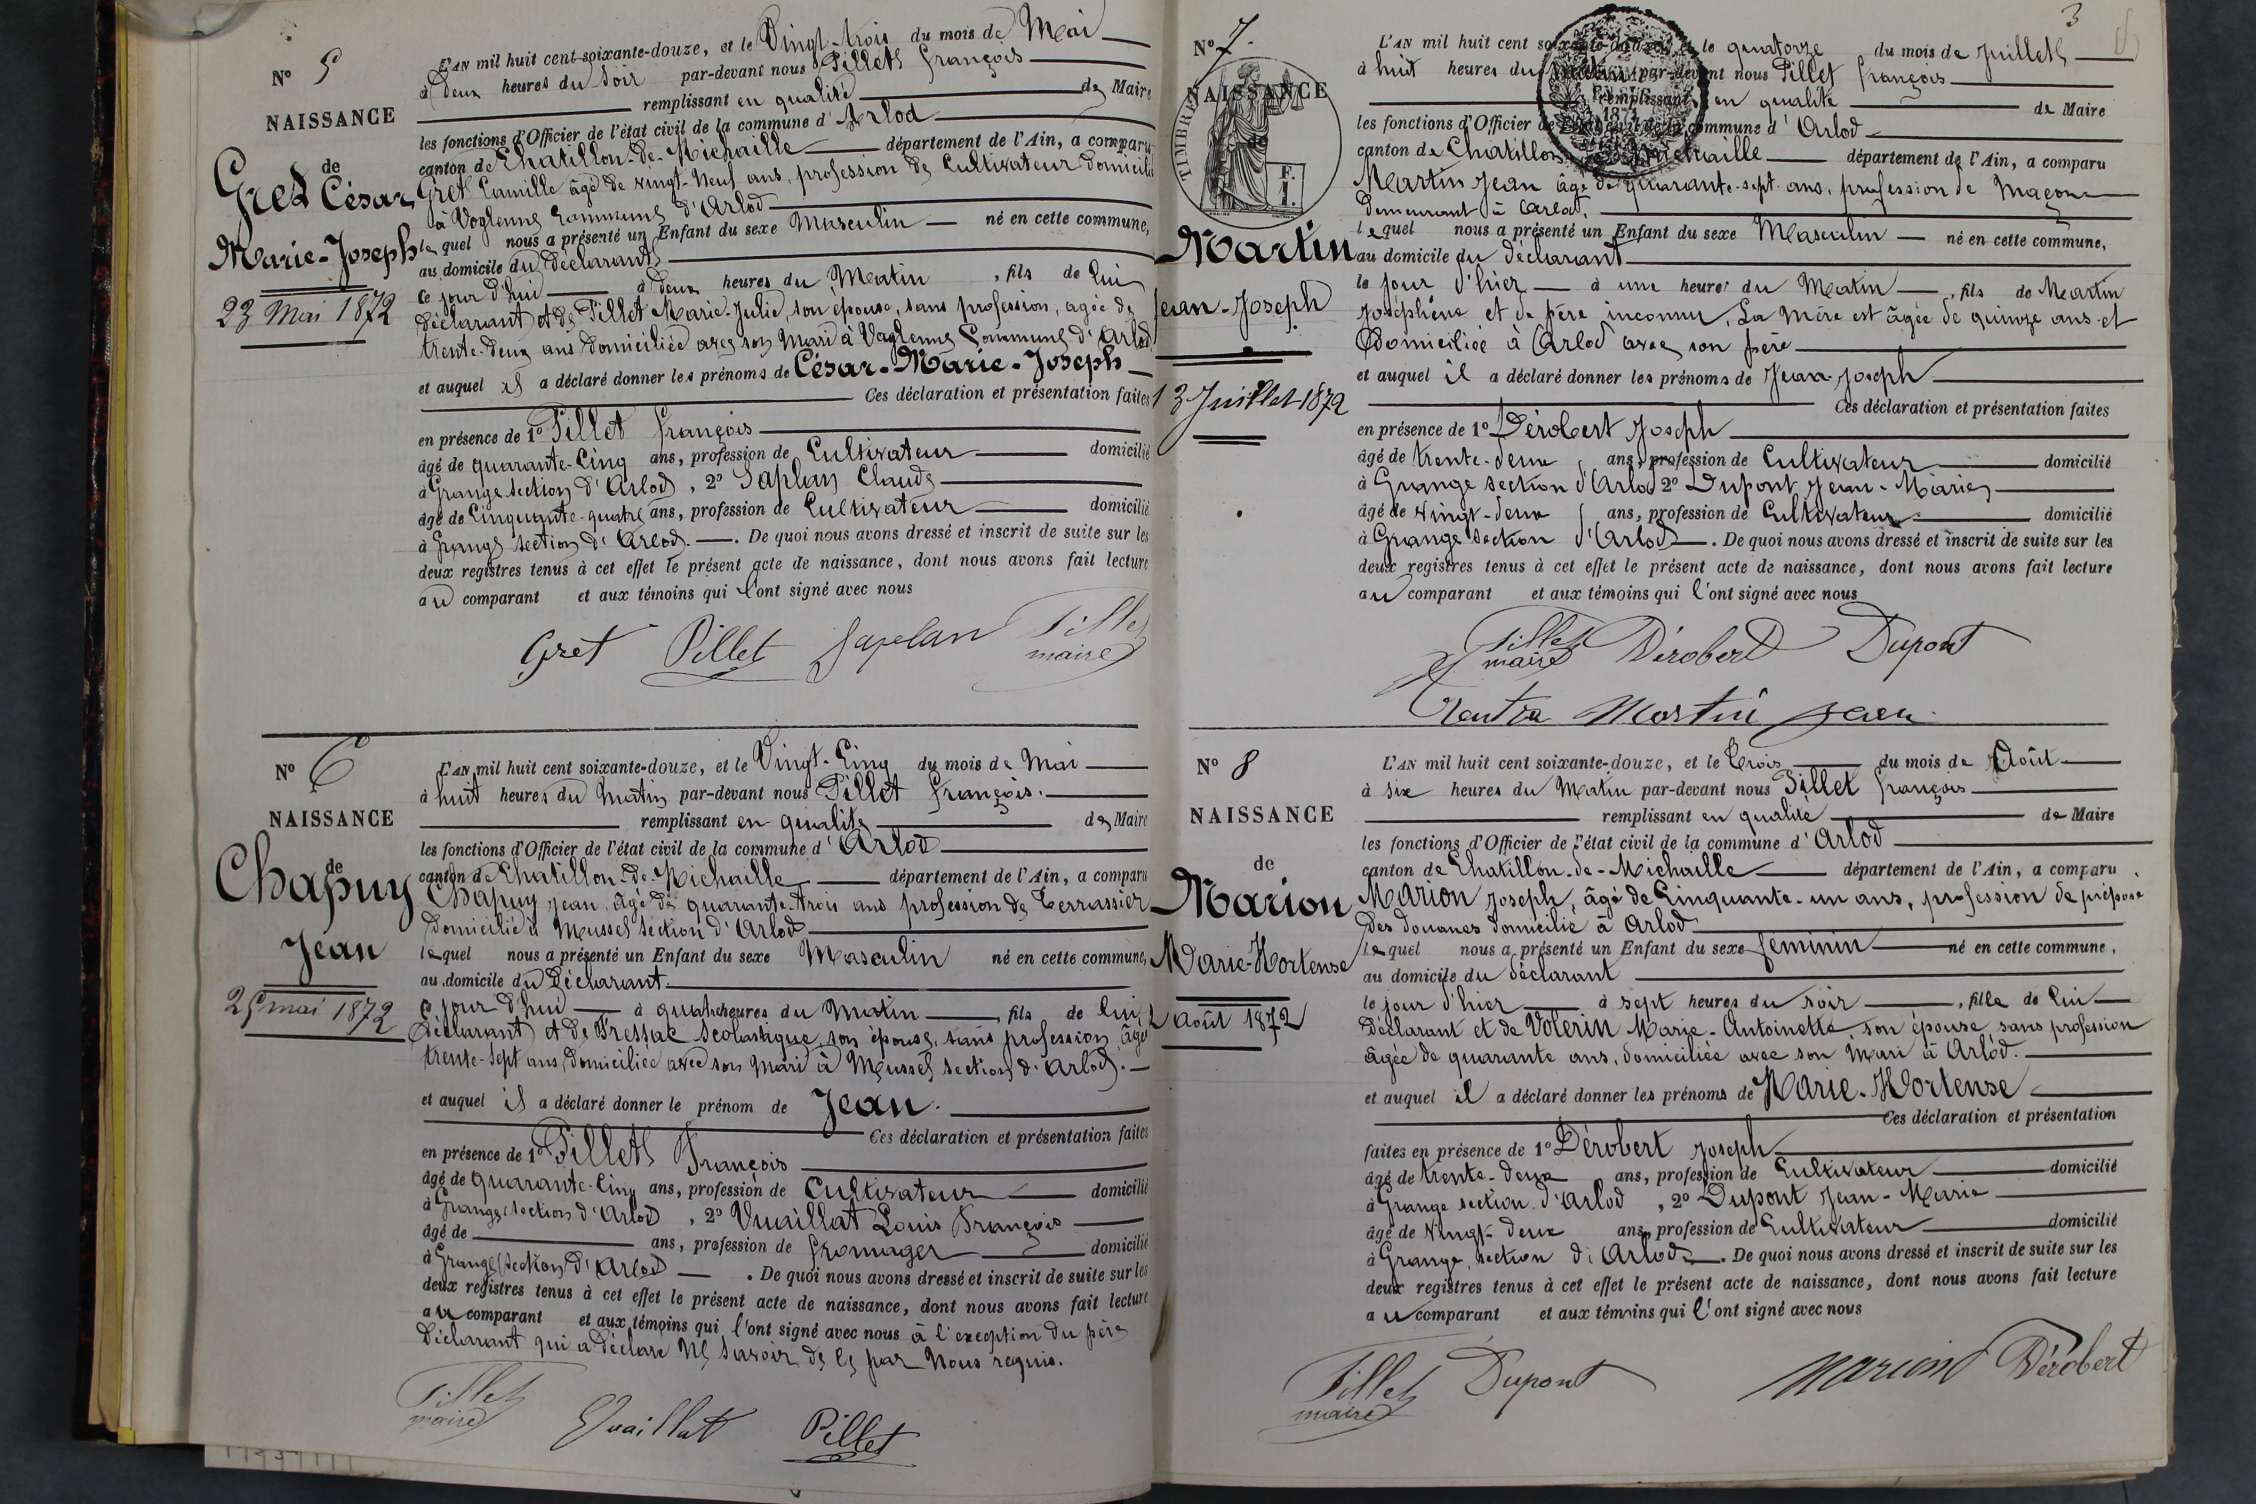 N° 5
NAISSANCE
de
Gret César
Marie-Joseph
23 Mai 1872
L'AN mil huit cent soixante-douze, et le Vingt-trois du mois de Mai
à Deux heures du Soir par-devant nous Pillet François
remplissant en qualité de Maire
les fonctions d'Officier de l'état civil de la commune d'Arlod
canton de Chatillon-de-Michaille département de l'Ain, a comparu
Gret Camille âgé de vingt-neuf ans, profession de Cultivateur domicilié
à Voglenne Commune d'Arlod
lequel nous a présenté un Enfant du sexe Masculin né en cette commune,
au domicile du Déclarant
ce jour d'hui à deux heures du Matin, fils de lui
Déclarant et de Pillet Marie-Julie, son épouse, sans profession, agée de
trente-deux ans domiciliée avec son Mari à Voglenne Commune d'Arlod
et auquel il a déclaré donner les prénoms de César-Marie-Joseph
Ces déclaration et présentation faites
en présence de 1° Pillet François
âgé de quarante-Cinq ans, profession de Cultivateur domicilié
à Grange section d'Arlod, 2° Saplan Claude
âgé de Cinquante-quatre ans, profession de Cultivateur domicilié
à Grange section d'Arlod. De quoi nous avons dressé et inscrit de suite sur les
deux registres tenus à cet effet le présent acte de naissance, dont nous avons fait lecture
au comparant et aux témoins qui l'ont signé avec nous
Gret Pillet Sapelan Pillet
maire
N° 6
NAISSANCE
de
Chapuy
Jean
25 mai 1872
L'AN mil huit cent soixante-douze, et le Vingt-Cinq du mois de Mai
à huit heures du Matin par-devant nous Pillet François.
remplissant en qualité de Maire
les fonctions d'Officier de l'état civil de la commune d'Arlod
canton de Chatillon-de-Michaille département de l'Ain, a comparu
Chapuy Jean, âgé de quarante-trois ans profession de Terrassier
domicilié à Mussel section d'Arlod
lequel nous a présenté un Enfant du sexe Masculin né en cette commune,
au domicile du Déclarant.
ce jour d'hui à quatre heures du Matin, fils de lui
Déclarant et de Fressac Scolastique, son épouse, sans profession, âgée
trente-sept ans, domiciliée avec son Mari à Mussel section d'Arlod.
et auquel il a déclaré donner le prénom de Jean.
Ces déclaration et présentation faites
en présence de 1° Pillet François
âgé de quarante-Cinq ans, profession de Cultivateur domicilié
à Grange section d'Arlod, 2° Vuaillat Louis François
âgé de ans, profession de fromager domicilié
à Grange section d'Arlod. De quoi nous avons dressé et inscrit de suite sur les
deux registres tenus à cet effet le présent acte de naissance, dont nous avons fait lecture
au comparant et aux témoins qui l'ont signé avec nous à l'exception du père
Déclarant qui a déclaré ne savoir de ce par Nous requis.
Pillet
maire
Vuaillat Pillet
3
N° 7.
NAISSANCE
de
TIMBRE
F.
1.
Martin
Jean-Joseph
13 Juillet 1872
L'AN mil huit cent soixante-douze, et le quatorze du mois de Juillet
à huit heures du Matin par-devant nous Pillet François
remplissant en qualité de Maire
les fonctions d'Officier de l'état civil de la commune d'Arlod
canton de Chatillon de Michaille département de l'Ain, a comparu
Martin Jean âgé de quarante-sept ans, profession de Maçon
demeurant à Arlod,
lequel nous a présenté un Enfant du sexe Masculin né en cette commune,
au domicile du déclarant
le jour d'hier à une heure du Matin, fils de Martin
Joséphine et de père inconnu, La Mère est âgée de quinze ans et
domiciliée à Arlod avec son père
et auquel il a déclaré donner les prénoms de Jean-Joseph
Ces déclaration et présentation faites
en présence de 1° Dérobert Joseph
âgé de trente-deux ans, profession de Cultivateur domicilié
à Grange section d'Arlod 2° Dupont Jean-Marie
âgé de vingt-deux ans, profession de Cultivateur domicilié
à Grange section d'Arlod. De quoi nous avons dressé et inscrit de suite sur les
deux registres tenus à cet effet le présent acte de naissance, dont nous avons fait lecture
au comparant et aux témoins qui l'ont signé avec nous
Pillet Dérobert Dupont
maire
Martin Jean
N° 8
NAISSANCE
de
Marion
Marie-Hortense
2 Août 1872
L'AN mil huit cent soixante-douze, et le Trois du mois de Août
à six heures du Matin par-devant nous Pillet François
remplissant en qualité de Maire
les fonctions d'Officier de l'état civil de la commune d'Arlod
canton de Chatillon-de-Michaille département de l'Ain, a comparu
Marion Joseph, âgé de Cinquante-un ans, profession de préposé
des douanes domicilié à Arlod
lequel nous a présenté un Enfant du sexe féminin né en cette commune,
au domicile du déclarant
le jour d'hier à sept heures du soir, fille de lui
déclarant et de Voterin Marie-Antoinette son épouse, sans profession
âgée de quarante ans, domiciliée avec son Mari à Arlod.
et auquel il a déclaré donner les prénoms de Marie-Hortense
Ces déclaration et présentation
faites en présence de 1° Dérobert Joseph
âgé de trente-deux ans, profession de Cultivateur domicilié
à Grange section d'Arlod, 2° Dupont Jean-Marie
âgé de vingt-deux ans, profession de Cultivateur domicilié
à Grange, section d'Arlod. De quoi nous avons dressé et inscrit de suite sur les
deux registres tenus à cet effet le présent acte de naissance, dont nous avons fait lecture
au comparant et aux témoins qui l'ont signé avec nous
Pillet Dupont Marion Dérobert
maire